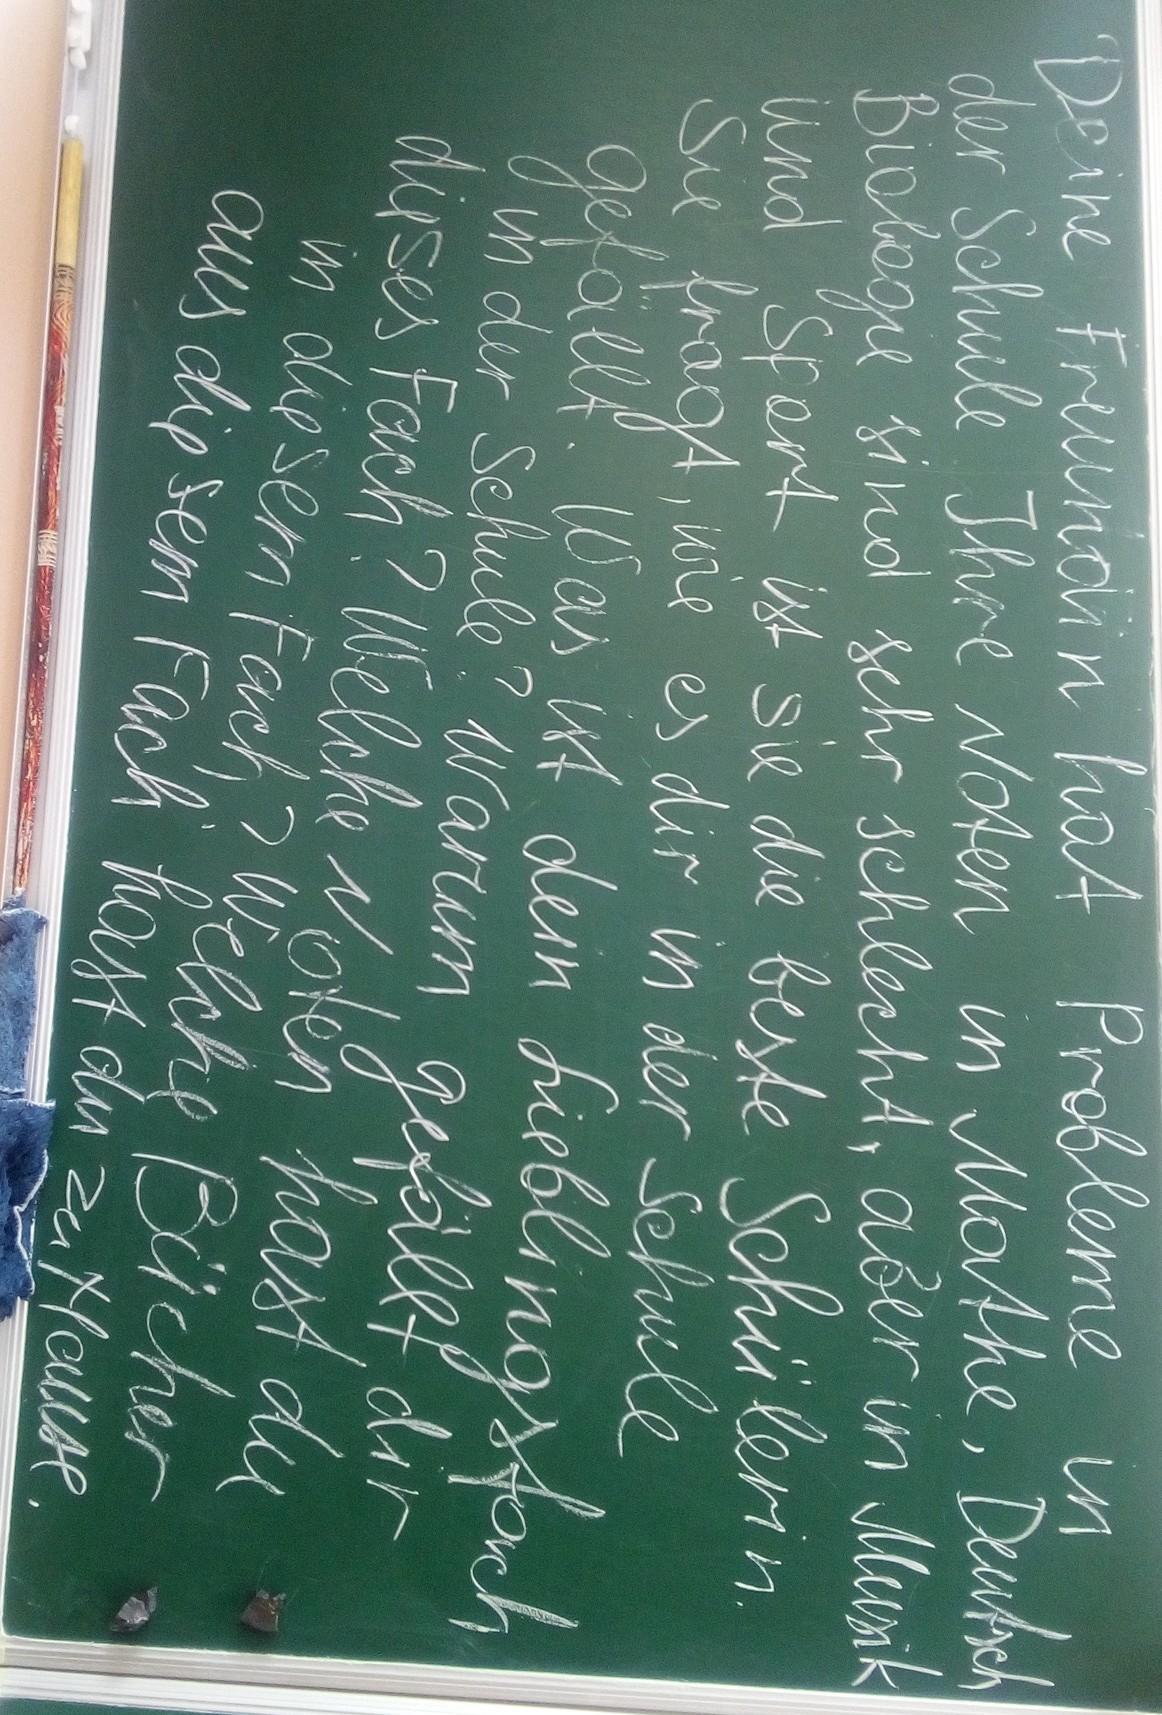 Deine Freundin hat Probleme in
der Schule Ihre Noten in Mathe, Deutsch
Biologie sind sehr schlecht, aber in Musik
Und Sport ist sie die beste Schülerin.
Sie fragt, wie es dir in der Schule
gefällt. Was ist dein Lieblingsfach
in der Schule? Warum gefällt dir
dieses Fach? Welche Noten hast du
in diesem Fach? Welche Bücher
aus diesem Fach hast du zu Hause.